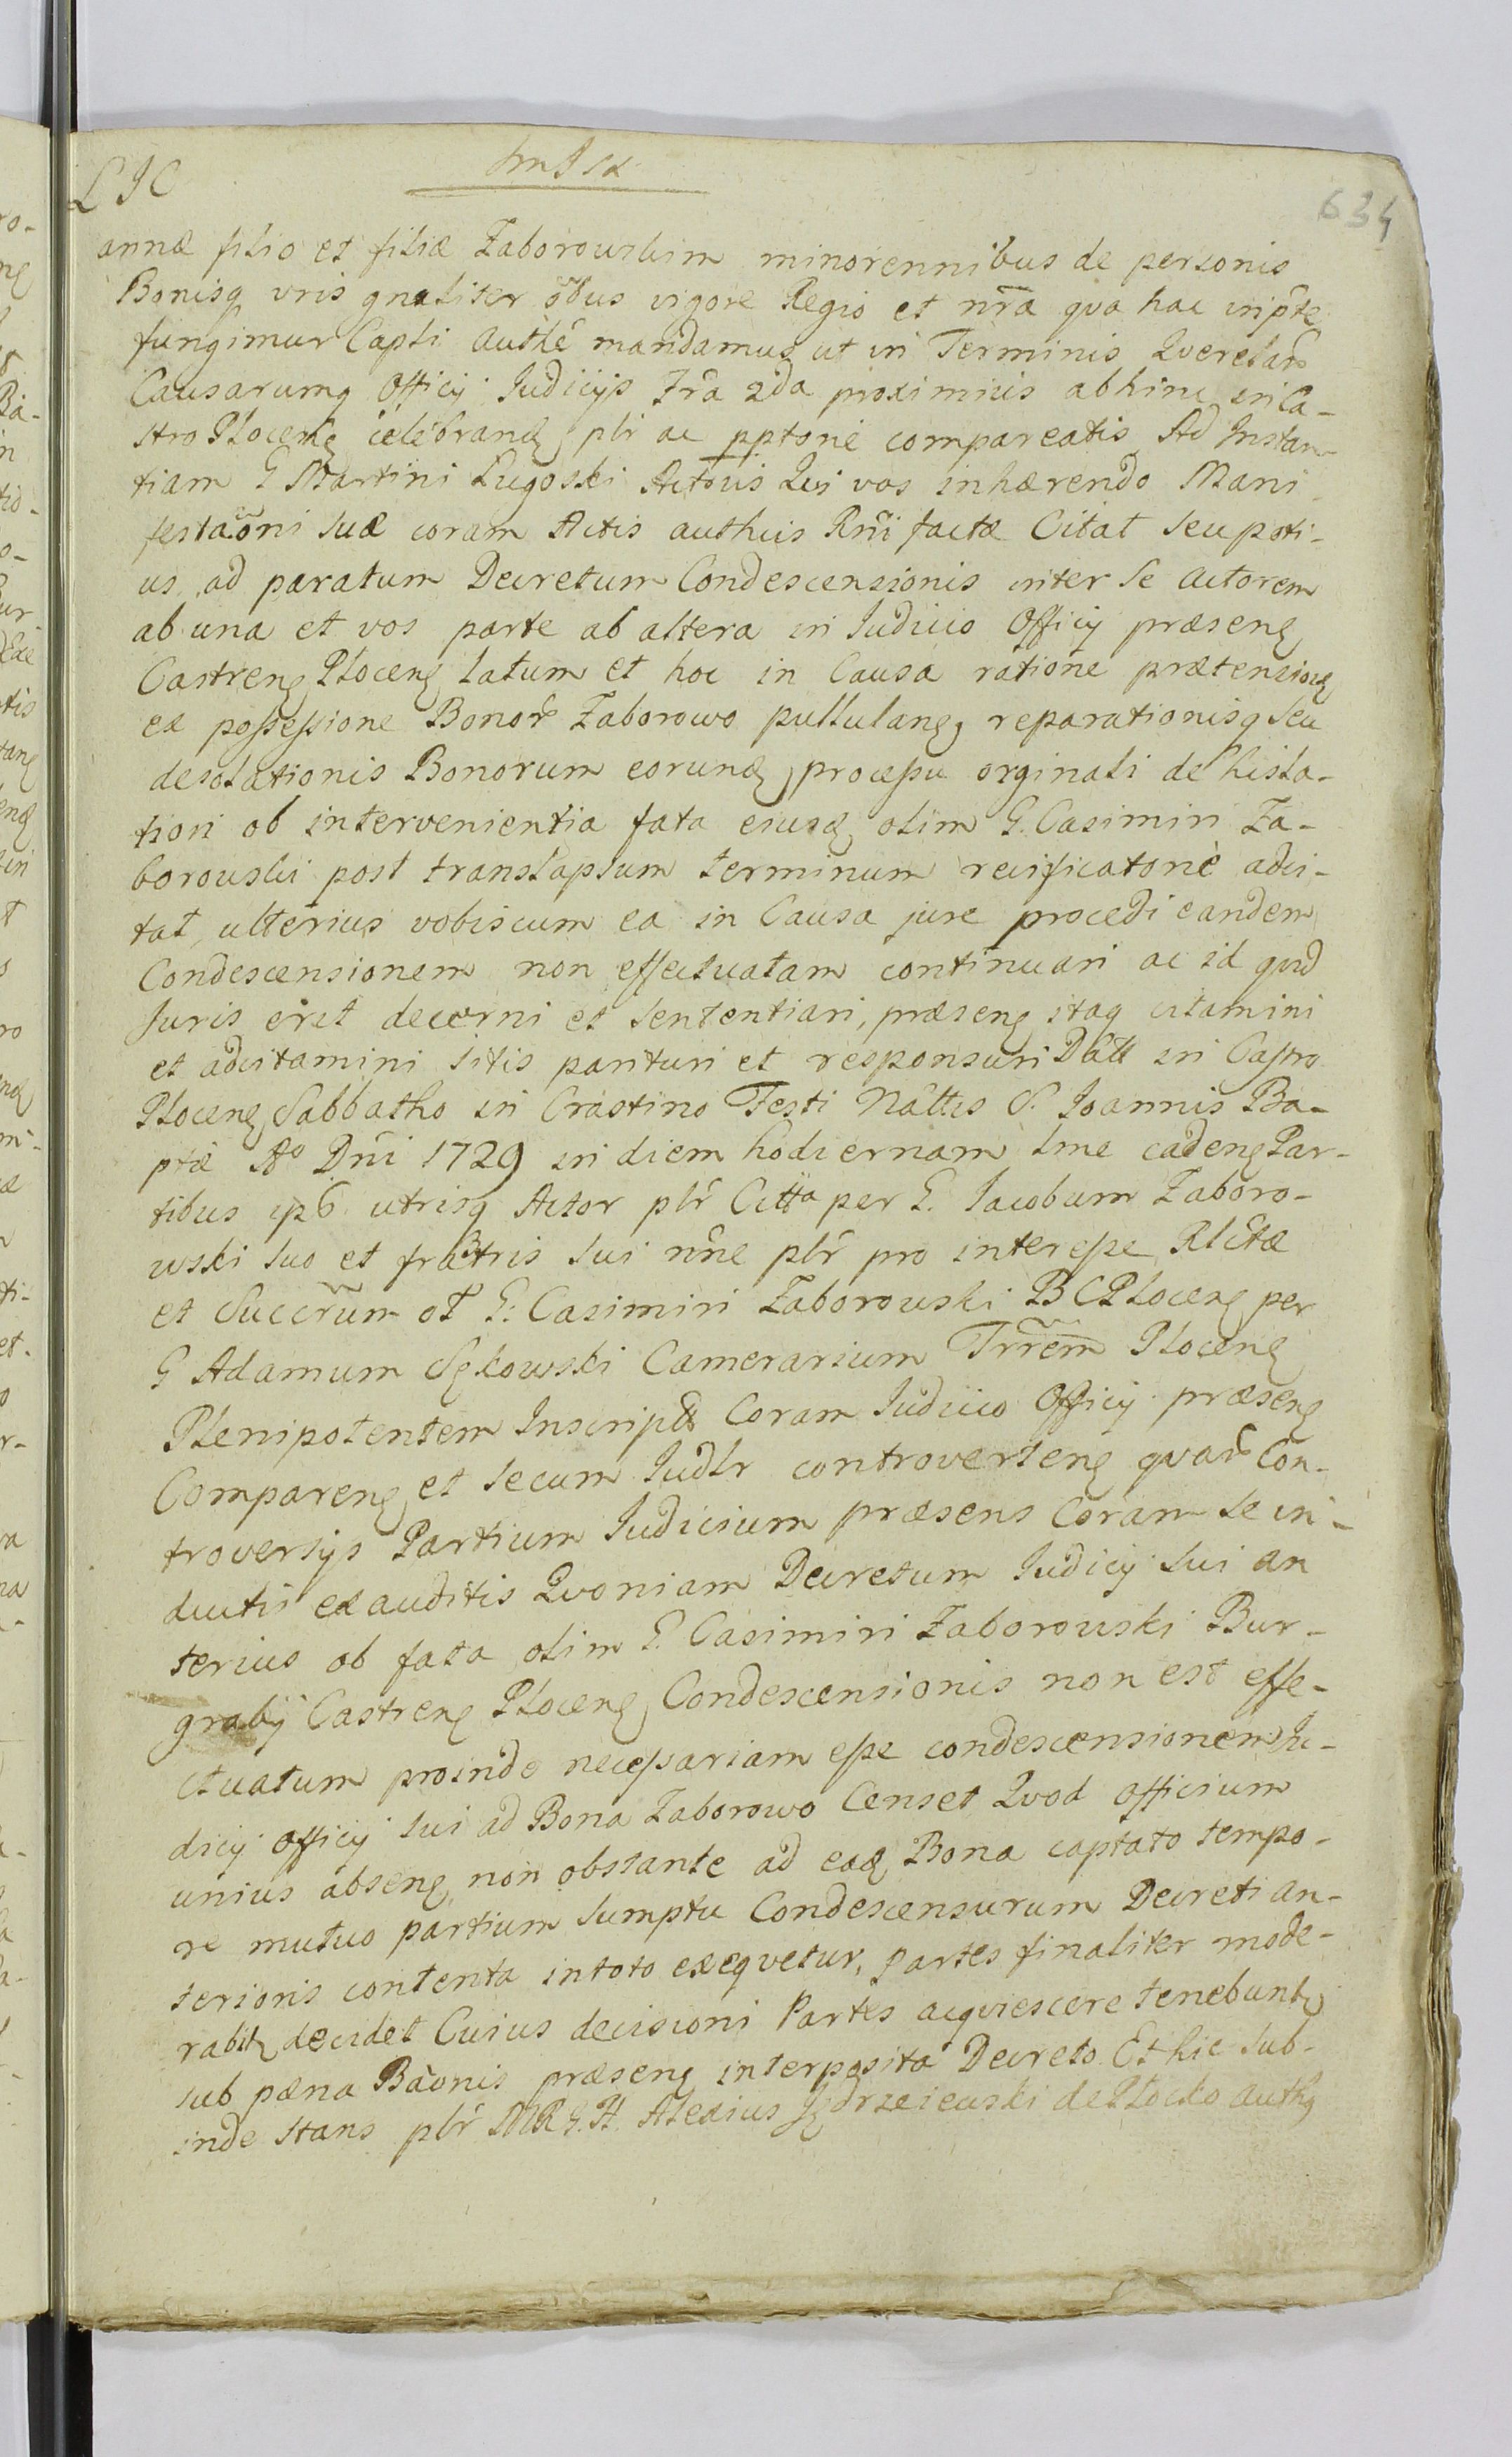 LIC
634
annæ filio et filiæ Zaborowskim minorennibus de personis
Bonisq vris gnaliter õbus vigore Regio et nrã qva hac in pte
fungimur Capli Authẽ mandamus ut in Terminis Qverelarũ
Causarumq Officij Judicijs Frã 2da proximius abhinc in Ca-
stro Plocenę celebranđ plr ac pptorie compareatis Ad Instan-
tiam G Martini Lugoski Actoris Qui vos inhærendo Mani
festaõni suæ coram Actis authcis Rnri factæ Citat seu poti-
us ad paratum Decretum Condescensionis inter se actorem
ab una et vos parte ab altera in Judicio Officij præsenę
Castrenę Plocenę latum et hoc in Causa ratione prætensionę
ex possessione Bonorũ Zaborowo pullulanę, reparationisq seu
desolationis Bonorum eorunđ processu orginali de hista-
tion ob intervenientia fata eiusđ olim G. Casimiri Za-
borowski post translapsum terminum reificatoriè adci-
tat, ulterius vobiscum ea in Causa jure procedi eandem
Condescensionem non effectuatam continuari ac id qvid
Juris erit decerni et sententiari, præsenę itaq citamini
et adcitamini sitis parituri et responsuri Datt in Castro
Plocenę Sabbatho in Crastino Festi Nâttis S. Joannis Ba-
ptæ Aº Dñi 1729 in diem hodiernam lme cadenę Par-
tibus ips utrisq Actor plr̃ Citta per G. Jacobum Zaboro-
wski suo et fratris sui nñe plr̃ pro interesse Rlctæ
et Succrũm ol G: Casimiri Zaborowski B C Plocenę per
G Adamum Sękowski Camerarium Trrem Plocenę
Plenipotentem Inscript Coram Judicio Officij præsenę
Comparenę et secum Judlr controvertenę qvarũ Con-
troversijs Partium Judicium præsens Coram se in-
ductis exauditis Qvoniam Decretum Judicij sui an
terius ob fata olim G. Casimiri Zaborowski Bur-
grabij Castrenę Plocenę Condescensionis non est effe-
ctuatum proinde necessariam esse condescensionem Ju-
dicij Officij sui ad Bona Zaborowo Censet Qvod officium
unius absenę non obstante ad eađ Bona captato tempo-
re mutuo partium sumptu Condescensurum Decreti an-
terioris contenta in toto exeqvetur, partes finaliter mode-
rabit decidet Cuius decisioni Partes acqviescere tenebunt
sub pæna Bãonis præsenę interposita Decreto Et hic sub-
inde stans plr̃ MRG.H. Alexius Jędrzeiewski de Płocko Authę